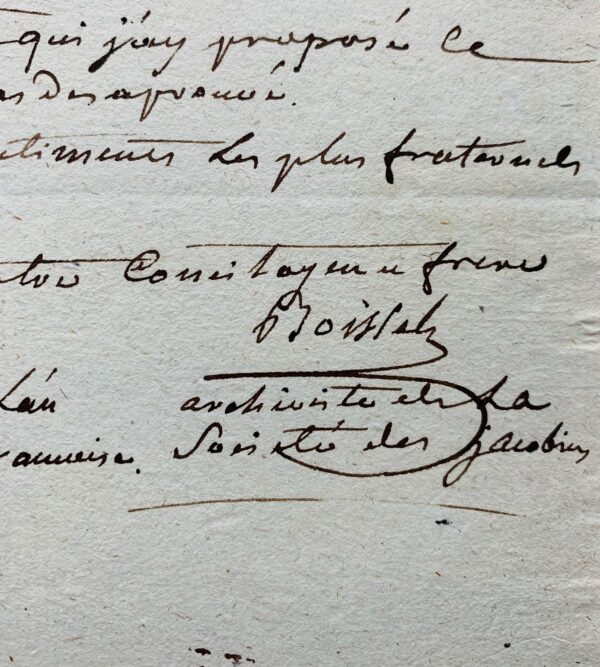 qui j'ay proposé Ce
as desaprouvé.
timents Les plus fraternels
tre Concitoyen et frere
Boissel
L'an archiviste de La
rancoise. Société des jacobins